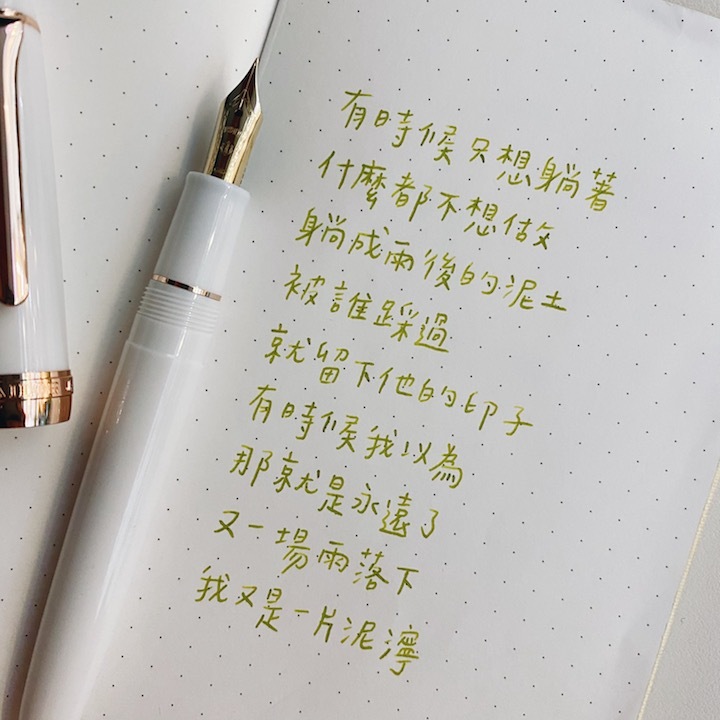 有時候只想躺著
什麼都不想做
躺成雨後的泥土
被誰踩過
就留下他的印子
有時候我以為
那就是永遠了
又一場雨落下
我又是一片泥濘